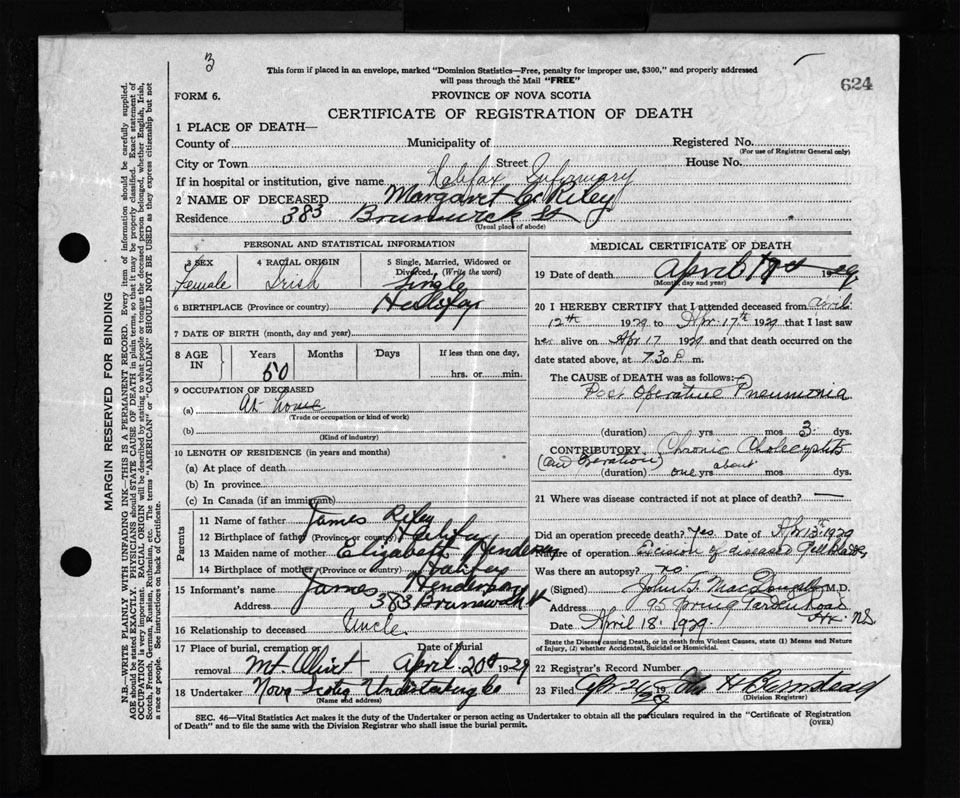 3
This form if placed in an envelope, marked "Dominion Statistics—Free, penalty for improper use, $300," and properly addressed
will pass through the Mail "FREE"
624
FORM 6.
PROVINCE OF NOVA SCOTIA
CERTIFICATE OF REGISTRATION OF DEATH
1 PLACE OF DEATH—
County of Municipality of Registered No.
(For use of Registrar General only)
City or Town Street House No.
If in hospital or institution, give name Halifax Infirmary
2 NAME OF DECEASED Margaret C. Riley
Residence 383 Brunswick St
(Usual place of abode)
PERSONAL AND STATISTICAL INFORMATION
3 SEX
Female
4 RACIAL ORIGIN
Irish
5 Single, Married, Widowed or
Divorced. (Write the word)
Single
6 BIRTHPLACE (Province or country) Halifax
7 DATE OF BIRTH (month, day and year)
8 AGE IN
Years Months Days If less than one day,
50
hrs. or min.
9 OCCUPATION OF DECEASED
(a) At home
(Trade or occupation or kind of work)
(b)
(Kind of industry)
10 LENGTH OF RESIDENCE (in years and months)
(a) At place of death
(b) In province
(c) In Canada (if an immigrant)
Parents
11 Name of father James Riley
12 Birthplace of father (Province or country) Halifax
13 Maiden name of mother Elizabeth Henderson
14 Birthplace of mother (Province or country) Halifax
15 Informant's name James Henderson
Address 383 Brunswick St
16 Relationship to deceased Uncle
17 Place of burial, cremation or Date of burial
removal Mt Olivet April 20th 1929
18 Undertaker Nova Scotia Undertaking Co
(Name and address)
MEDICAL CERTIFICATE OF DEATH
19 Date of death April 17th 1929
(Month, day and year)
20 I HEREBY CERTIFY that I attended deceased from April
12th 1929 to Apr. 17th 1929 that I last saw
her alive on Apr 17 1929 and that death occurred on the
date stated above, at 7.30 P. m.
The CAUSE OF DEATH was as follows:—
Post Operative Pneumonia
(duration) yrs mos 3 dys.
CONTRIBUTORY Chronic
(and operation) about
(duration) one yrs mos dys.
21 Where was disease contracted if not at place of death? —
Did an operation precede death? Yes. Date of Apr 13th 1929
Nature of operation Excision of diseased Gall Bladder
Was there an autopsy? no.
(Signed) John G. MacDougall M.D.
Address 95 Spring Garden Road
Hx. N.S.
Date April 18. 1929.
State the Disease causing Death, or in death from Violent Causes, state (1) Means and Nature
of Injury, (2) whether Accidental, Suicidal or Homicidal.
22 Registrar's Record Number
23 Filed Apr 24 1929 John H Barnstead
(Division Registrar)
SEC. 46—Vital Statistics Act makes it the duty of the Undertaker or person acting as Undertaker to obtain all the particulars required in the "Certificate of Registration
of Death" and to file the same with the Division Registrar who shall issue the burial permit. (OVER)
MARGIN RESERVED FOR BINDING
N.B.—WRITE PLAINLY WITH UNFADING INK—THIS IS A PERMANENT RECORD. Every item of information should be carefully supplied.
AGE should be stated EXACTLY. PHYSICIANS should STATE CAUSE OF DEATH in plain terms, so that it may be properly classified. Exact statement of
OCCUPATION is very important. RACIAL ORIGIN will be described by stating to what people or tongue the deceased person belonged, whether English, Irish,
Scotch, French, German, Russian, Ruthenian, etc. The terms "AMERICAN" or "CANADIAN" SHOULD NOT BE USED as they express citizenship but not
a race or people. See instructions on back of Certificate.